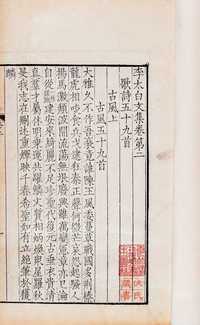 李太白文集卷第二
歌詩五十九首
古風上
古風五十九首
大雅久不作吾衰竟誰陳王風委蔓草戰國多荊榛
龍虎相啖食兵戈逮狂秦正聲何微茫哀怨起騷人
揚馬激頹波開流蕩無垠廢興雖萬變憲章亦已淪
自從建安來綺麗不足珍聖代復元古垂衣貴清
真羣才屬休明乘運共躍鱗文質相炳煥衆星羅秋
旻我志在刪述重輝映千春希聖如有立絕筆於獲
麟